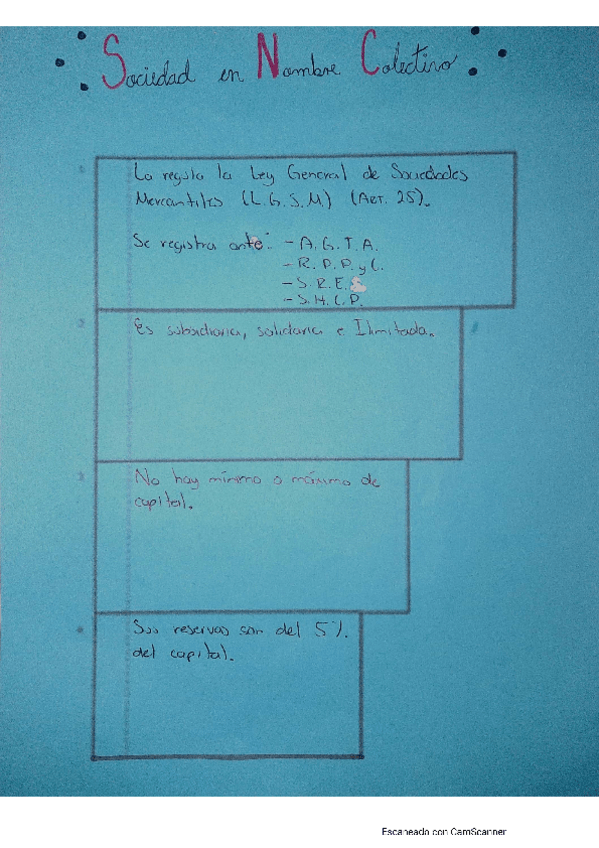 Sociedad en Nombre Colectivo
La regula la Ley General de Sociedades
Mercantiles (L.G.S.M) (Art. 25).
Se registra ante: - A.G.T.A.
- R.P.P. y C.
- S.R.E.
- S.H.C.P.
Es subsidiaria, solidaria e Ilimitada.
No hay mínimo o máximo de
capital.
Sus reservas son del 5%.
del capital.
Escaneado con CamScanner